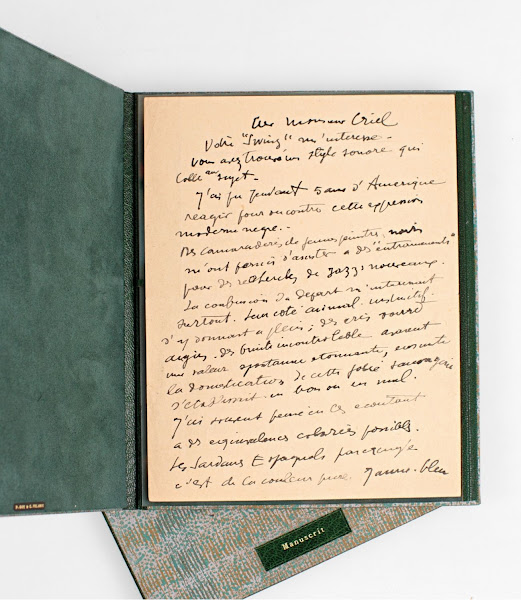 Cher Monsieur Criel
Votre "Swing" m'interesse -
vous avez trouvé un style sonore qui
colle au sujet -
J'ai pu pendant 5 ans d'Amerique
reagir pour ou contre cette expression
moderne negre -
Des camaraderies de jeunes peintres noirs
m'ont permis d'assister a des "entrainements"
pour des recherches de Jazz nouveaux.
La confusion du depart m'interessait
surtout. Leur coté animal instinctif
s'y donnait a plein; des cris sourds
aigus - des bruits incontrolable avaient
une valeur spontanée etonnante, ensuite
la domestication de cette folie sauvage
s'etablissait en bon ou en mal.
J'ai souvent pensé en les ecoutant
a des equivalences colorées possibles.
Les Sardanes Espagnols par exemple
c'est de la couleur pure. Jaune. bleu
Manuscrit